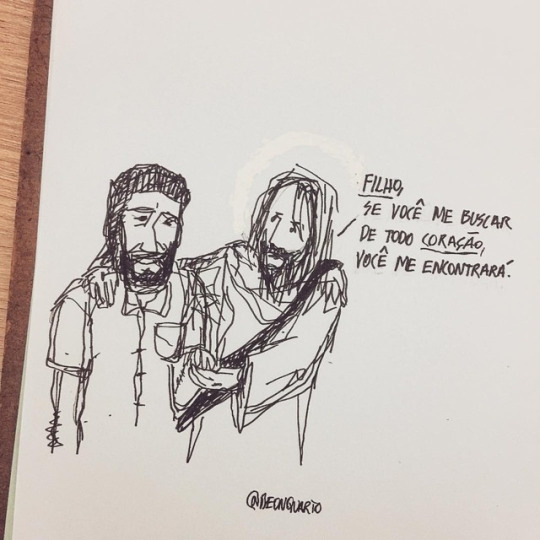 FILHO,
SE VOCÊ ME BUSCAR
DE TODO CORAÇÃO,
VOCÊ ME ENCONTRARÁ.